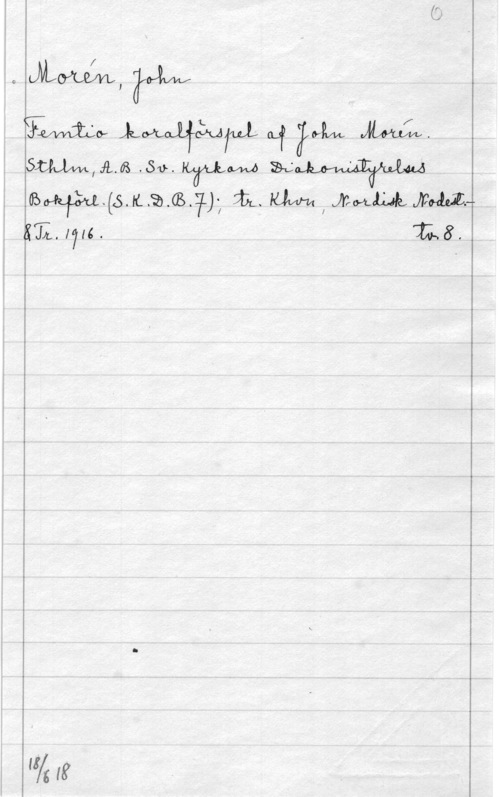 O
Morén, John
Femtio koralförspel af John Morén.
Sthlm, A.B. Sv. Kyrkans Diakonistyrelses
Bokförl. (S.K.D.B. 7); tr. Khvn, Nordisk Nodest.-
& Tr. 1916. tv. 8.
18/6 18